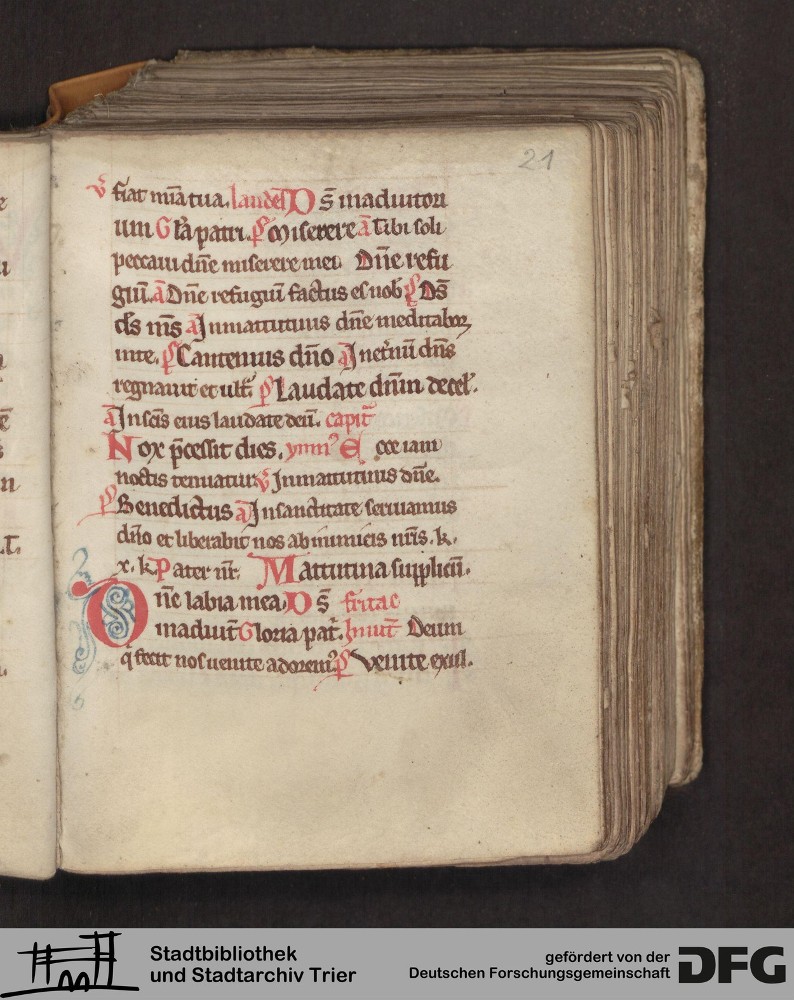 21
v̄ fiat mīa tua. laudes D s̄ inadiutori
um Gl̄a patri. p̄s Miserere ā Tibi soli
peccaui dn̄e miserere mei Dn̄e refu
giū. ā Dn̄e refugiū factus es nob̄ p̄s Ds̄
ds̄ ms̄ ā In matutinis dn̄e meditabor
in te. p̄s Cantemus dn̄o ā In et'nū dn̄s
regnauit et ult̄. p̄s Laudate dn̄m de cel'.
ā In sc̄is eius laudate deū. capit̄
Nox p̄cessit dies. ymn' E cce iam
noctis tenuatur v̄ In matutinis dn̄e.
p̄s Benedictus ā In sanctitate seruiamus
dn̄o et liberabit nos ab inimicis nr̄is. k.
x. k. Pater nr̄. Matutina supplicū.
Dn̄e labia mea. D s̄ fr̄itac
inadiut̄ Gloria pat̄. Inuit̄ Deum
q̄ fecit nos uenite adorem' p̄s Venite exul.
Stadtbibliothek
und Stadtarchiv Trier
gefördert von der
Deutschen Forschungsgemeinschaft
DFG